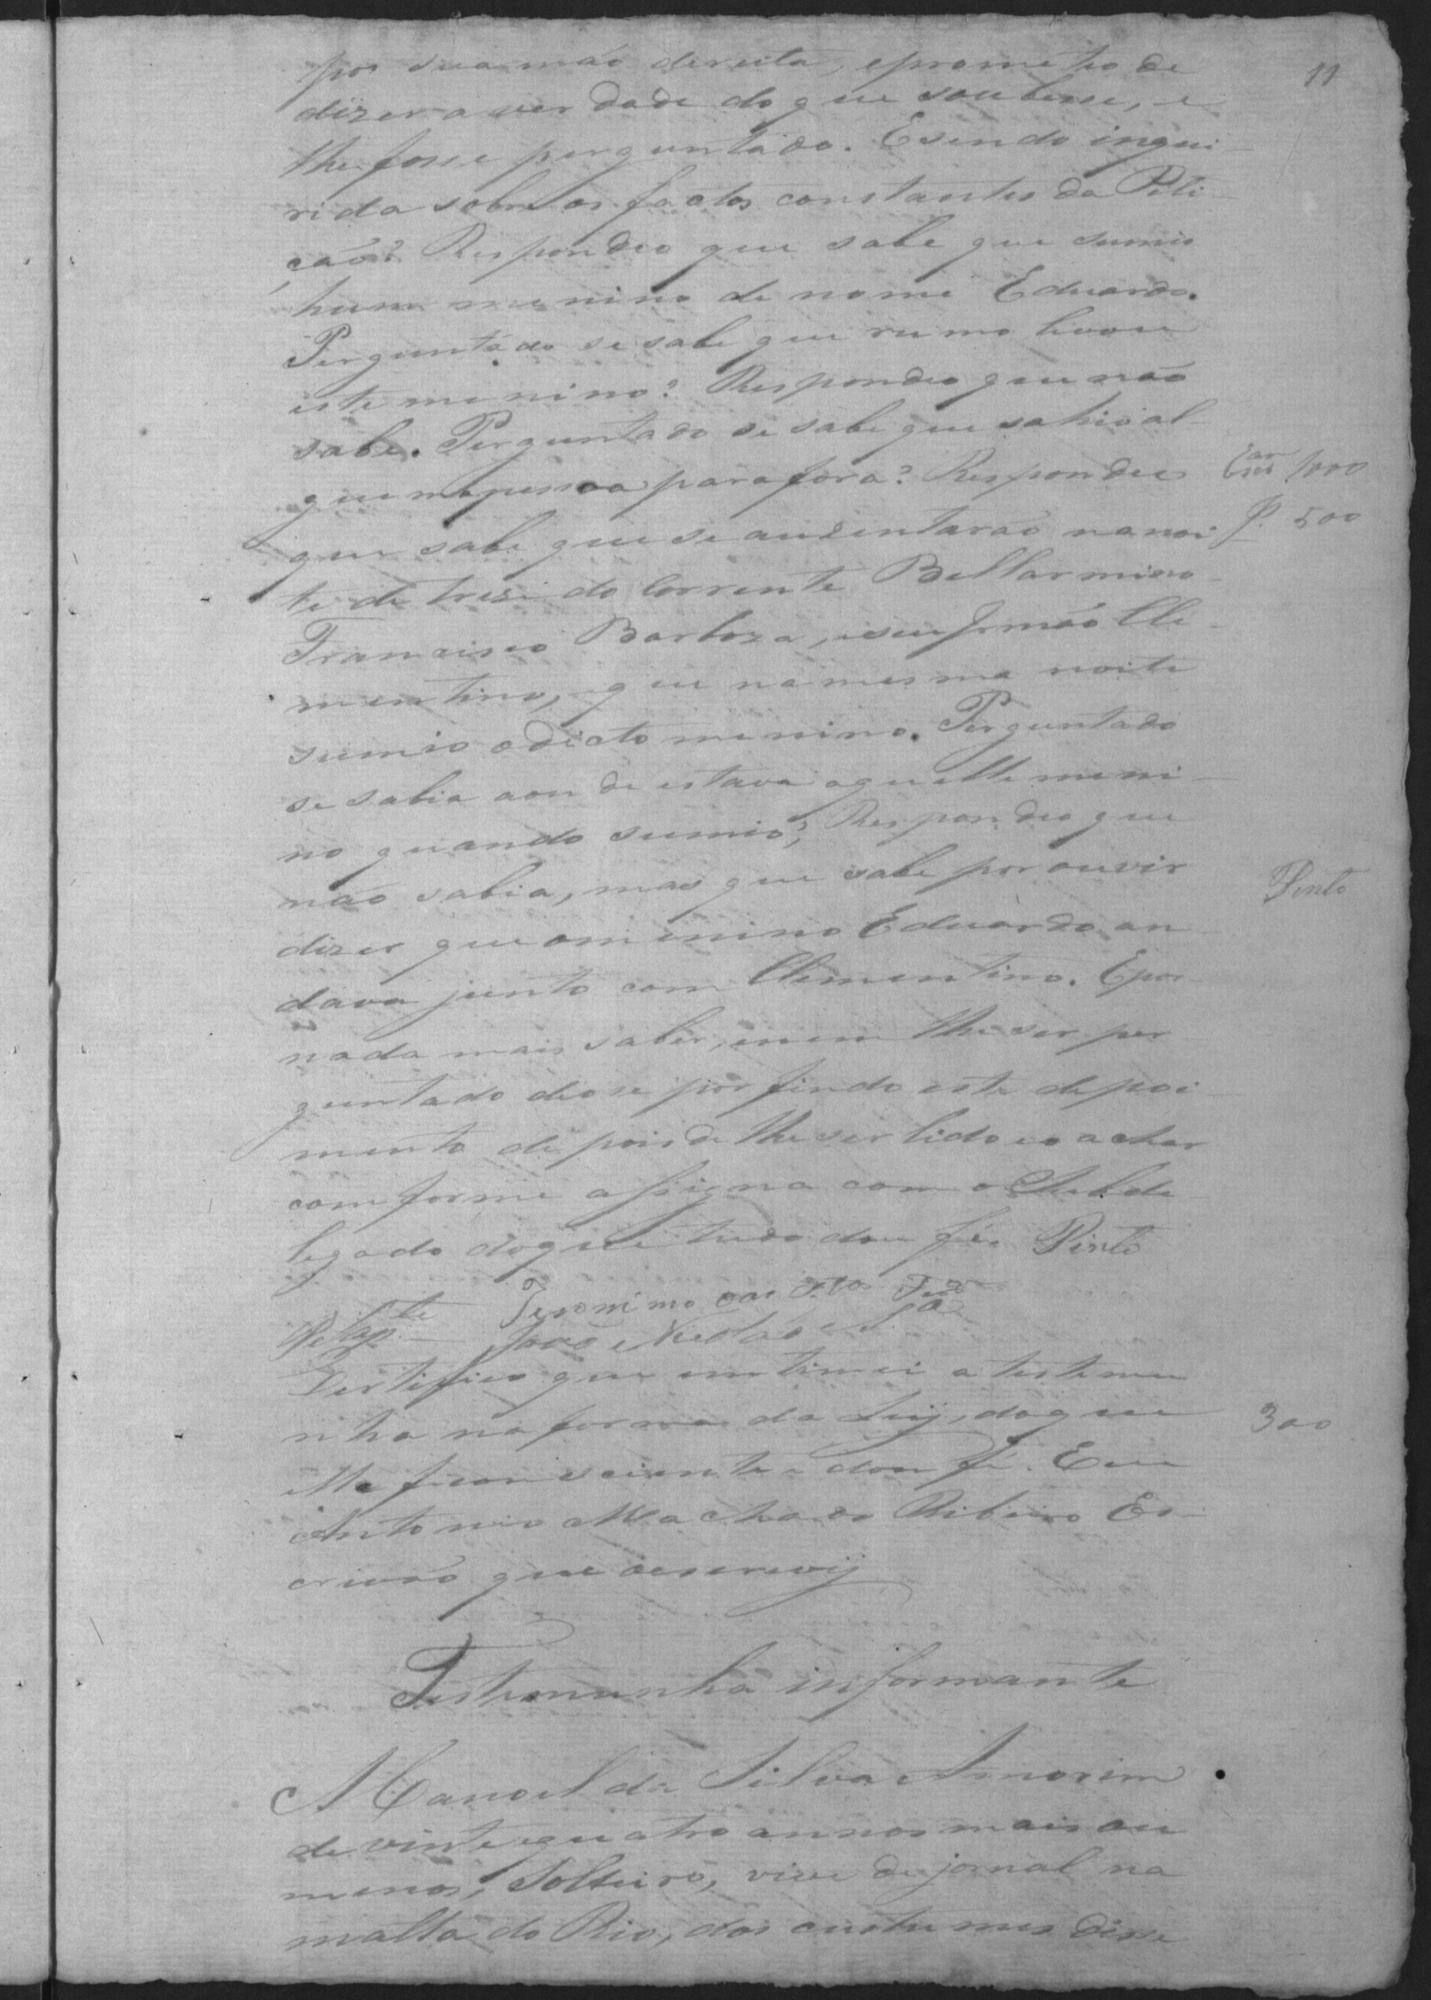 11
por sua mão dereita, eprometeo de
dizer a ver dade do que soubesse, e
lhe fosse perguntado. Esendo inqui-
rida sobre os factos constantes da Peti-
ção? Respondeo que sabe que sumio
hum menino de nome Eduardo.
Perguntado se sabe que rumo levou
este menino? Respondeo que não
sabe. Perguntado se sabe que sahio al-
guma pessoa para fora? Respondeu
1000
que sabe que se auzentarão na noi-
500
te de treze do Corrente Bellarmino
Francisco Barboza, eseu Irmão Cle-
mentino, que na mesma noite
sumio o dicto menino. Perguntado
se sabia aonde estava aquelle meni-
no quando sumio? Respondeo que
não sabia, mas que sabe por ouvir
Pinto
dizer que omenino Eduardo an-
dava junto com Clementino. Epor
nada mais saber, enem lhe ser per
guntado deose por findo este depoi-
mento depois de lhe ser lido eo achar
comforme assigna com o Subde
legado doque tudo dou fé. Pinto
Jeronimo
João
Certifico que entimei a testemu
nha na forma da Leij, do que
300
elle ficou sciente e dou fé. Eu
Antonio Machado Ribeiro Es-
crivão que oescrevij
Testemunha informante
Manoel da Silva Amorim
de vinte equatro annos mais ou
menos, Solteiro, vive de jornal na
matta do Rio, dos custumes disse